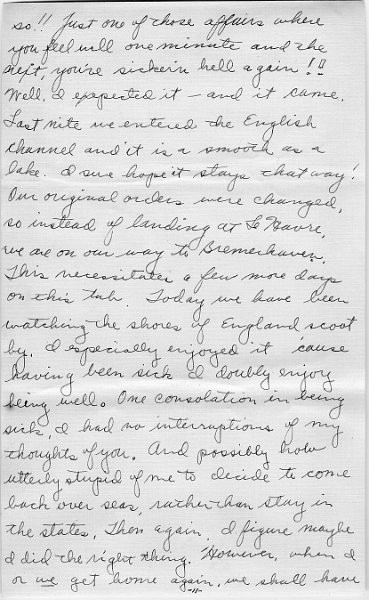 so!! Just one of those affairs where
you feel well one minute and the
next, you're sicker'n hell again!!
Well. I expected it – and it came.
Last nite we entered the English
channel and it is a smooth as a
lake. I sure hope it stays that way!
Our original orders were changed,
so instead of landing at Le Havre,
we are on our way to Bremerhaven.
This necessitates a few more days
on this tub. Today we have been
watching the shores of England scoot
by. I especially enjoyed it 'cause
having been sick I doubly enjoy
being well. One consolation in being
sick, I had no interruptions of my
thoughts of you. And possibly how
utterly stupid of me to decide to come
back over seas, rather than stay in
the states. Then again, I figure maybe
I did the right thing. However, when I
or we get home again, we shall have